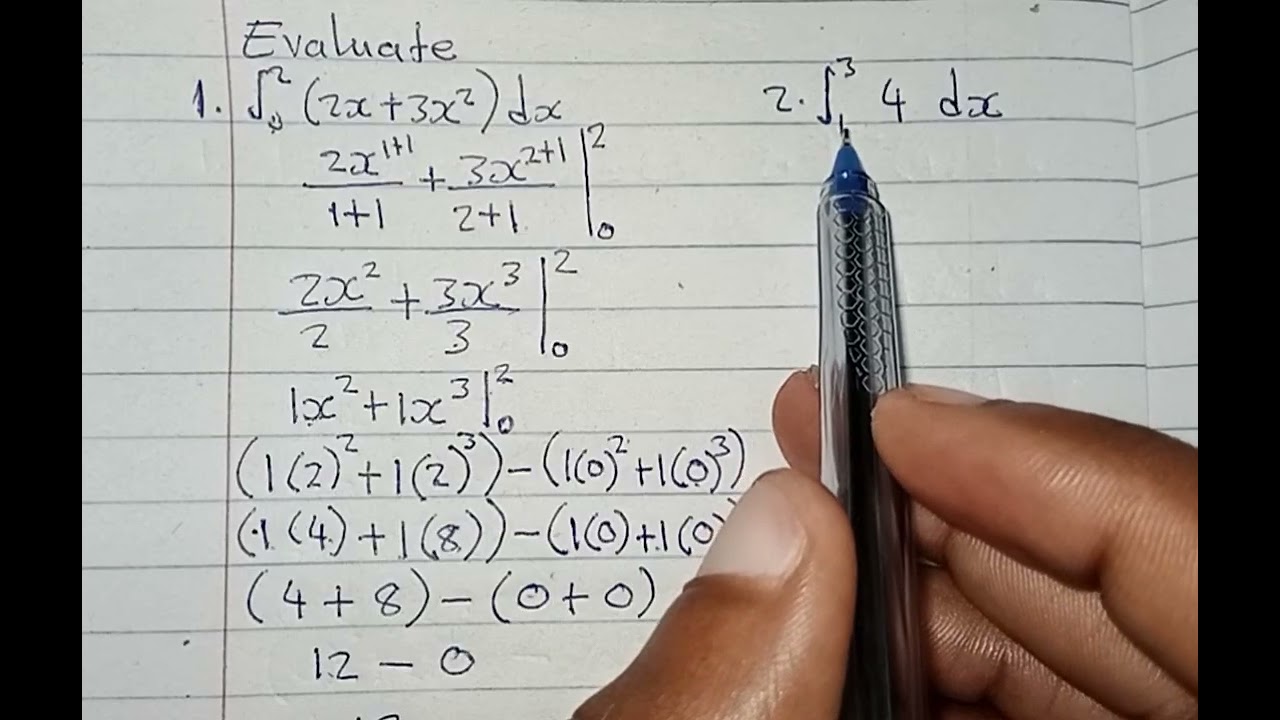 Evaluate
1. ∫₀² (2x + 3x²) dx
2x¹⁺¹/1+1 + 3x²⁺¹/2+1 |₀²
2x²/2 + 3x³/3 |₀²
1x² + 1x³ |₀²
(1(2)² + 1(2)³) − (1(0)² + 1(0)³)
(1(4) + 1(8)) − (1(0) + 1(0)
(4 + 8) − (0 + 0)
12 − 0
2. ∫₁³ 4 dx